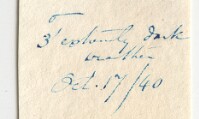 3' extremely dark
weather
Oct. 17/40